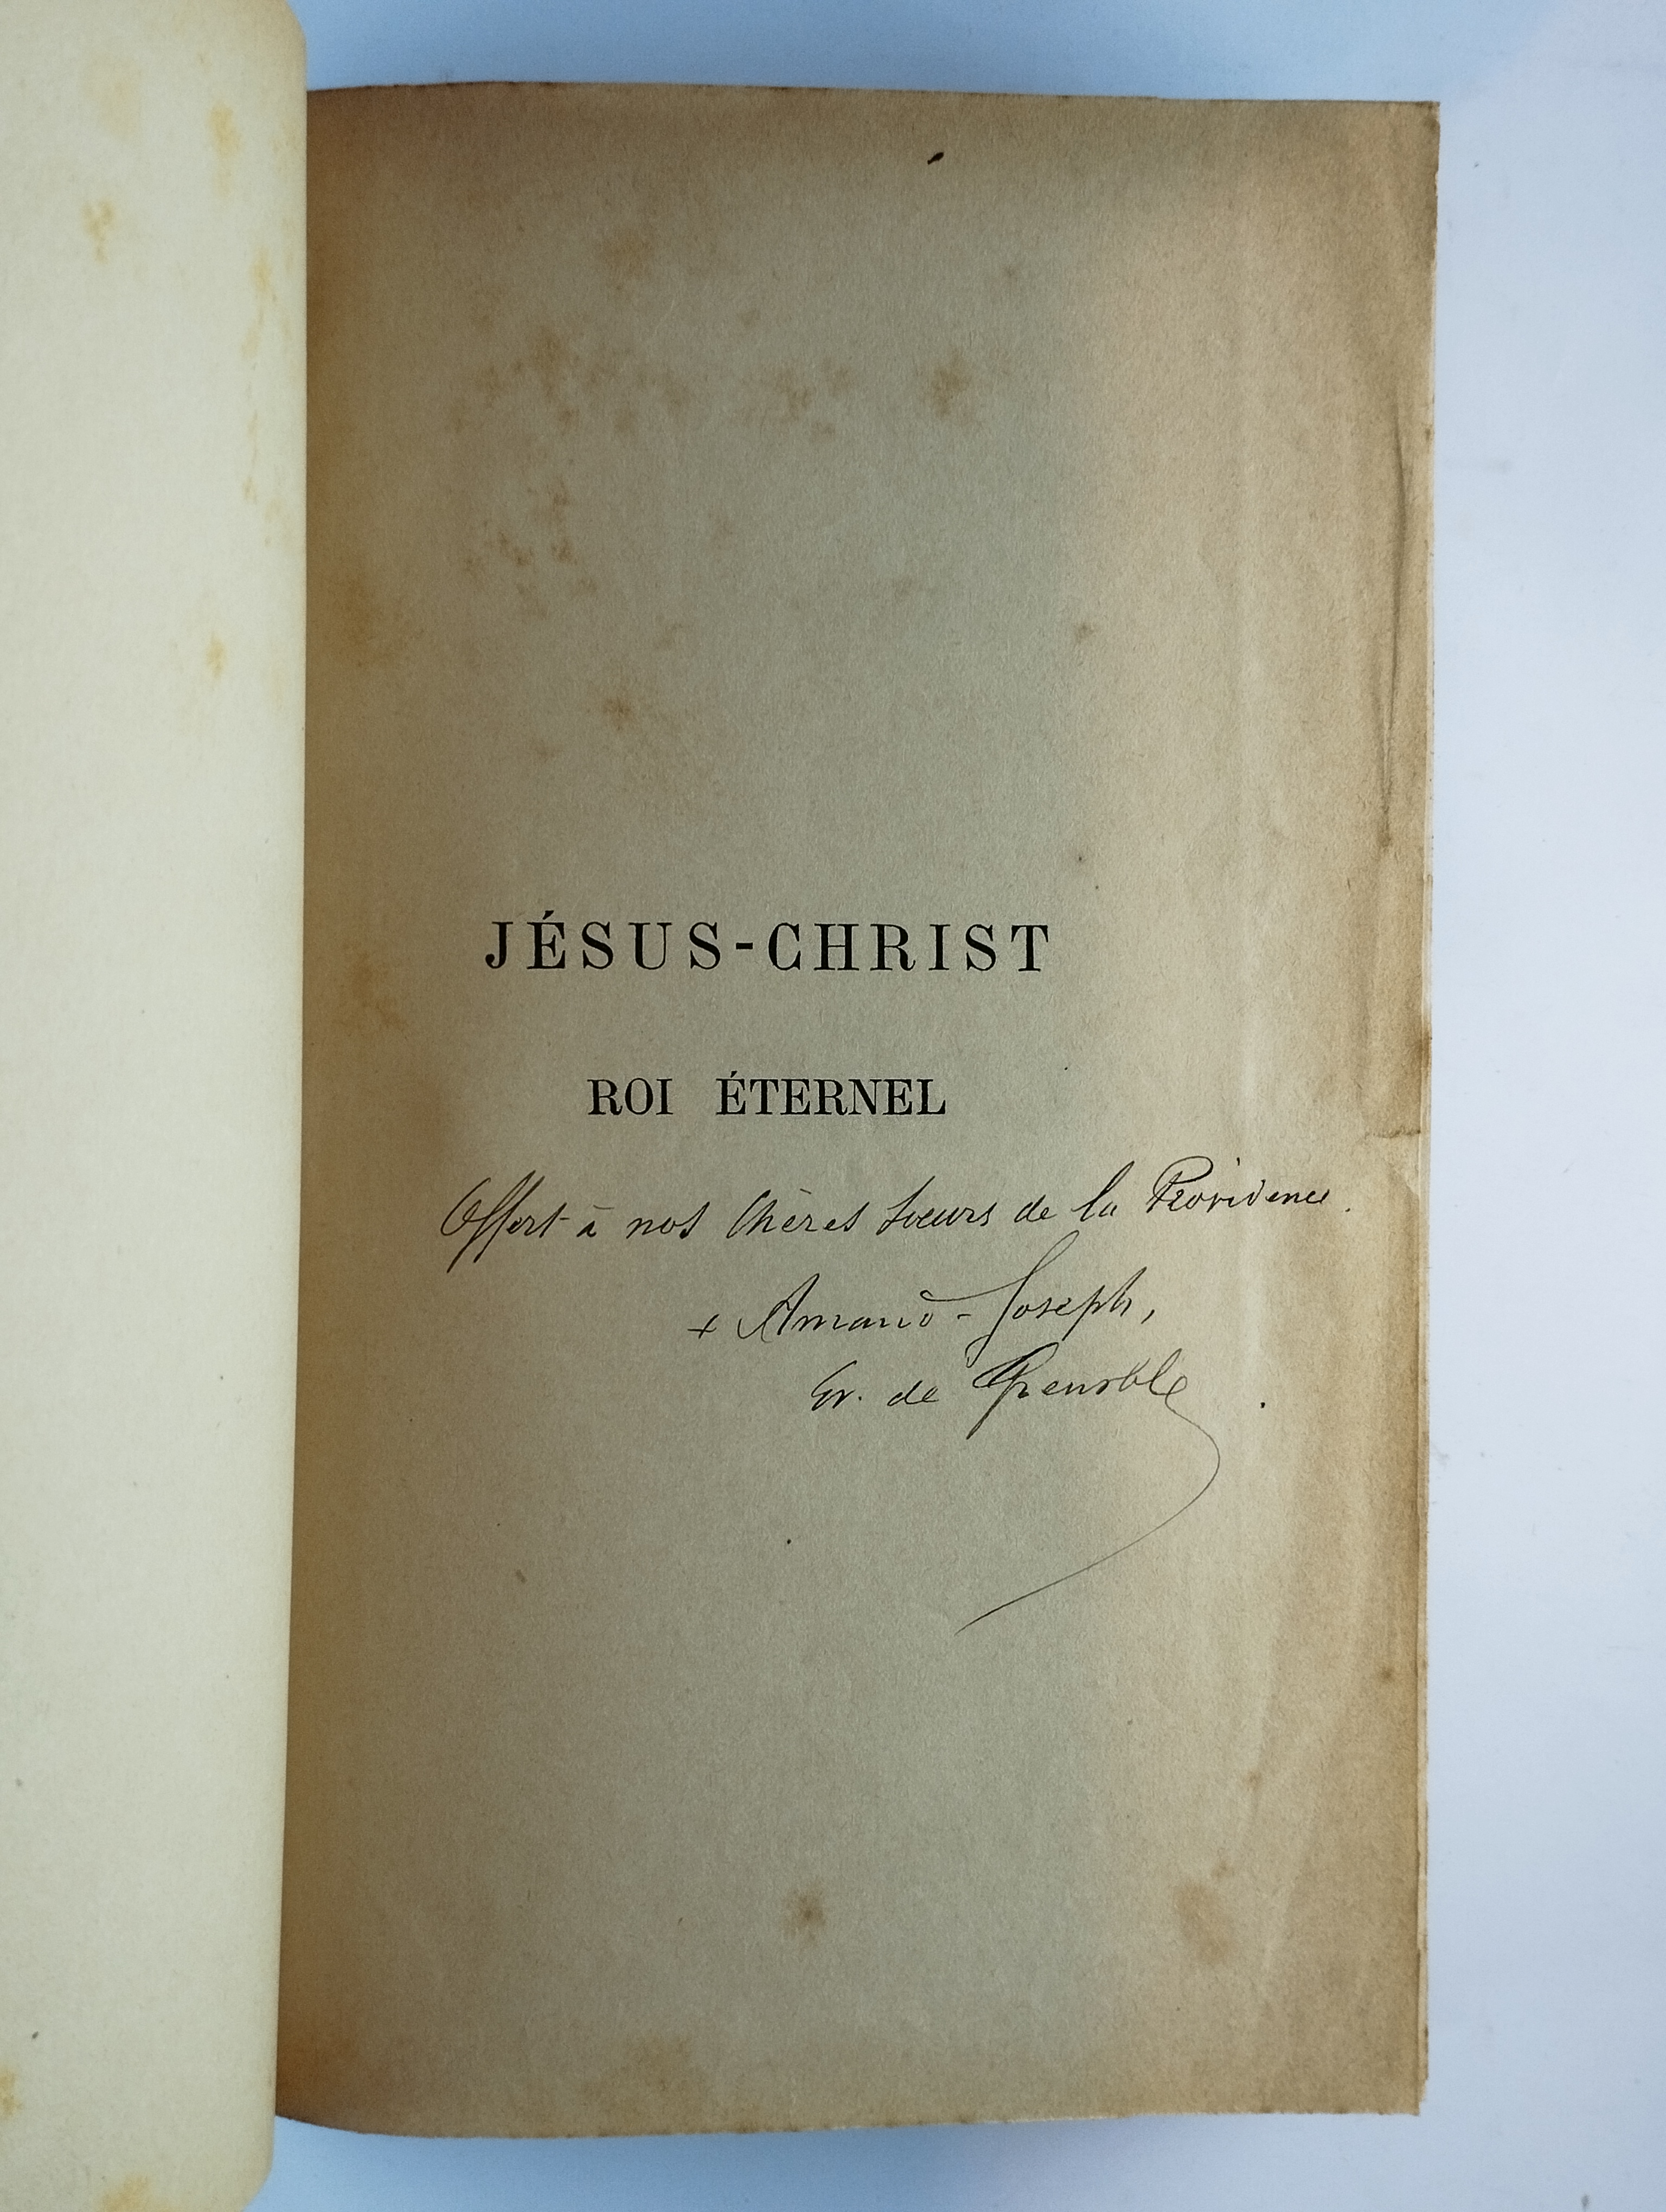 JÉSUS-CHRIST
ROI ÉTERNEL
Offert à nos Chères Sœurs de la Providence.
+ Amand-Joseph,
Ev. de Grenoble